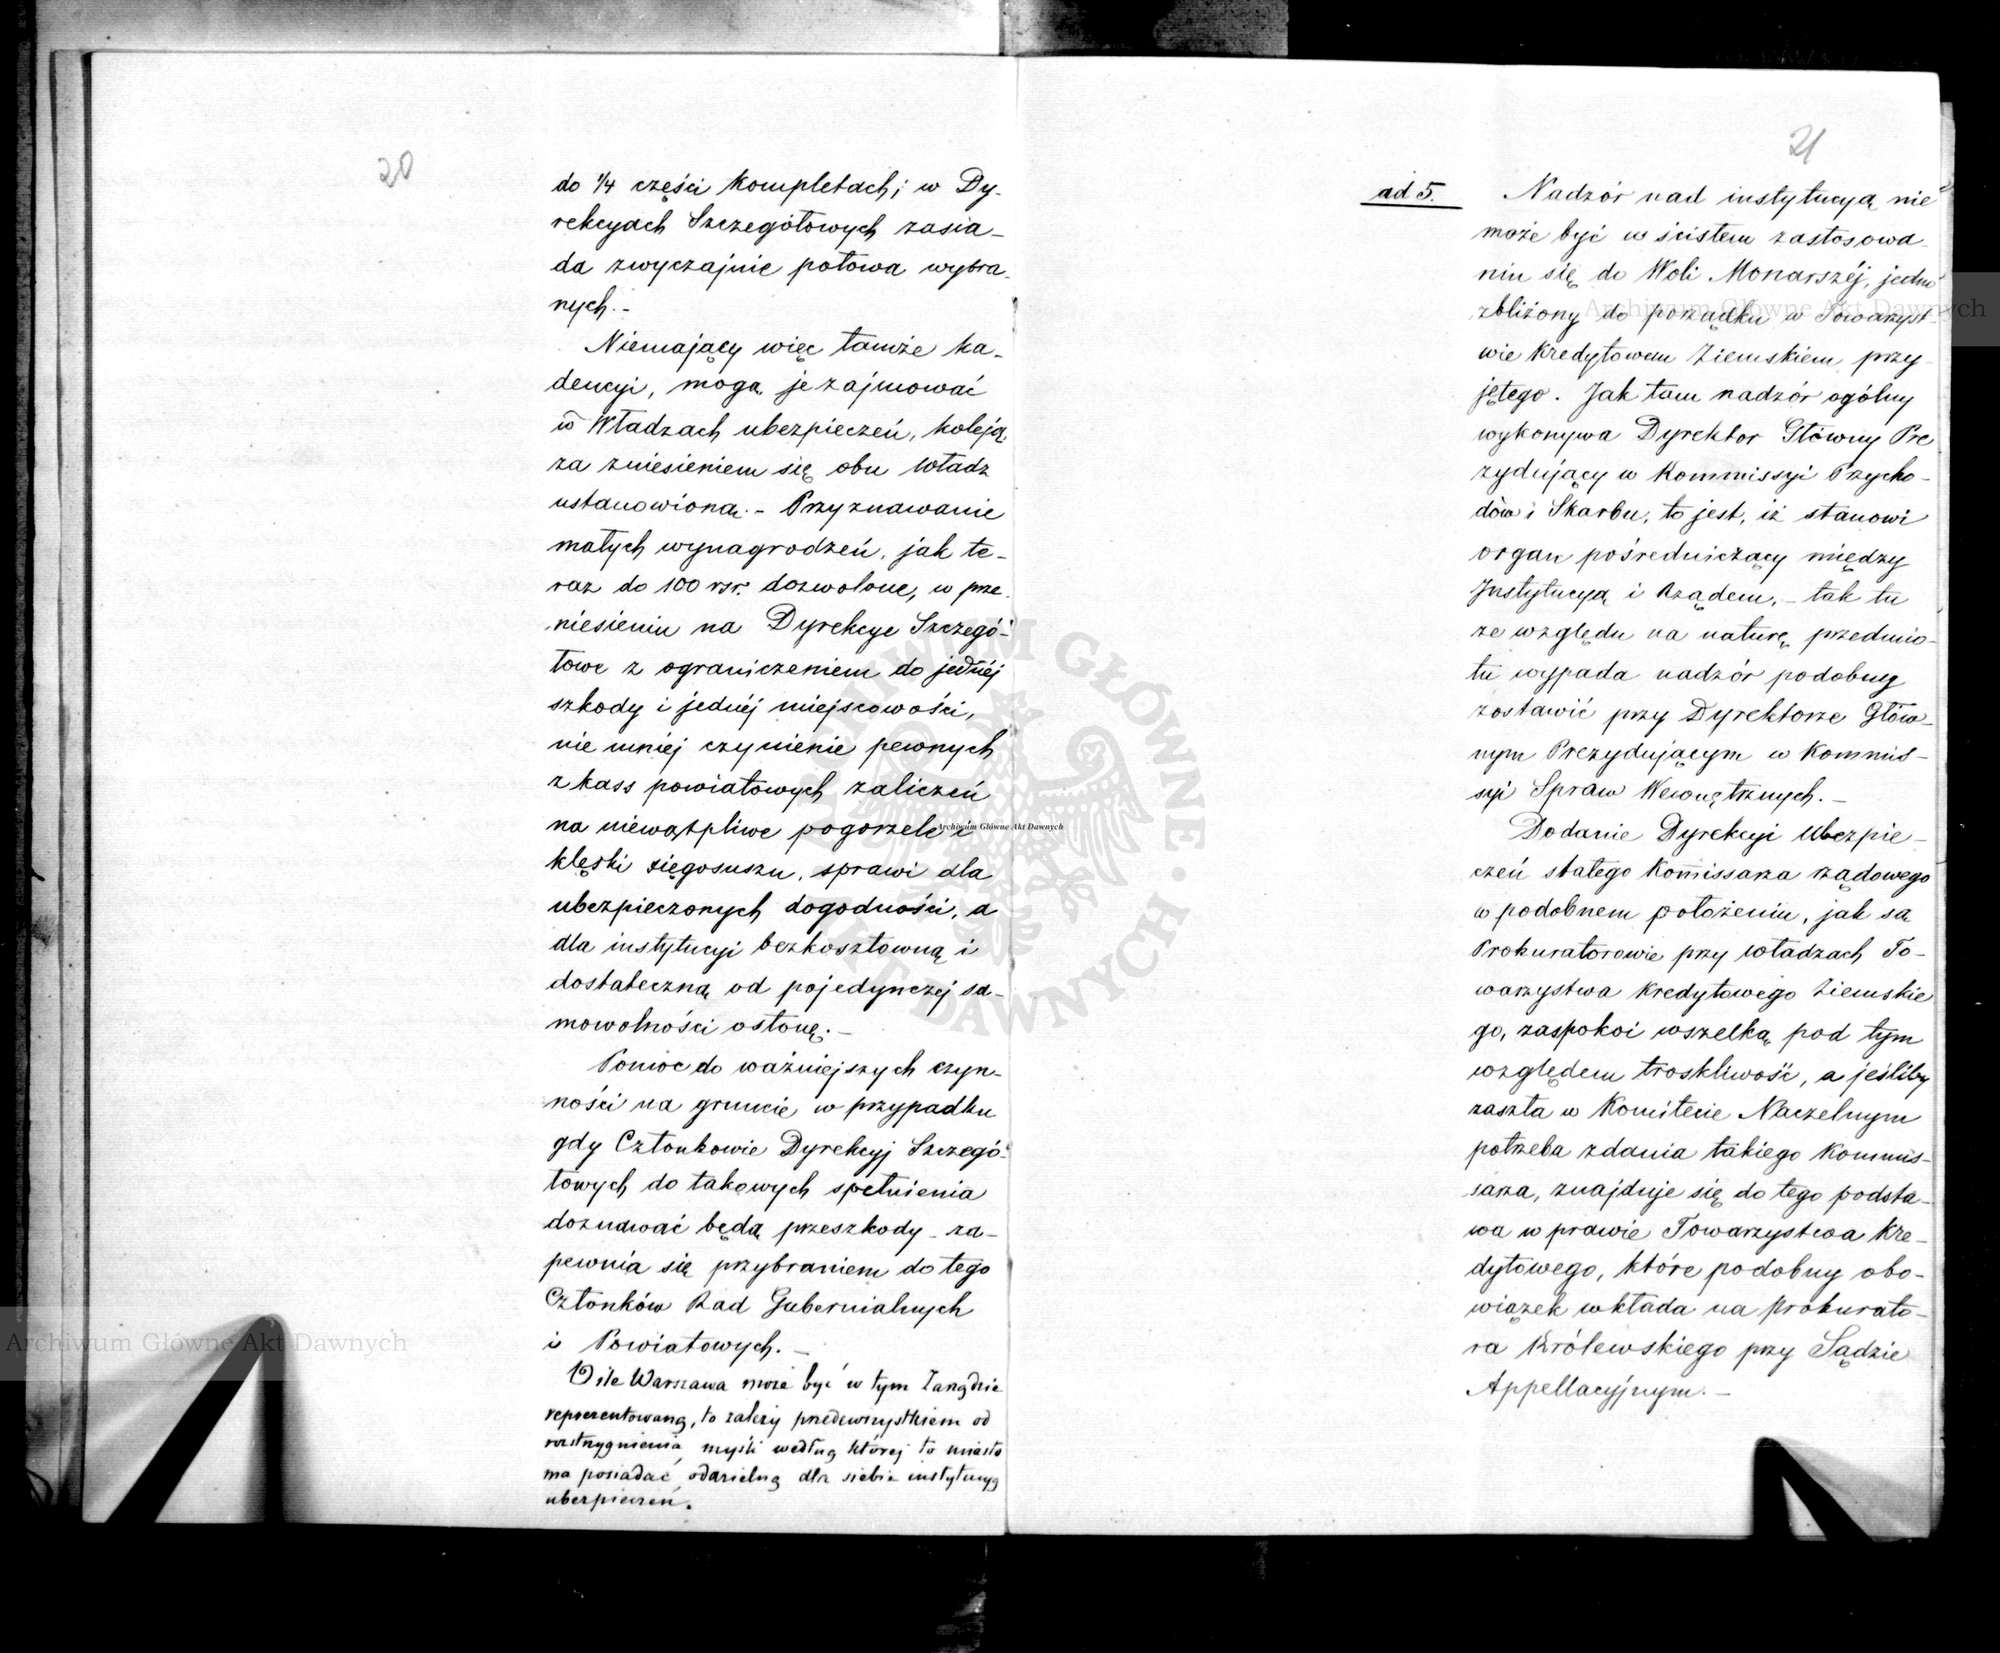 20
do 1/4 części kompletach; w Dy-
rekcyach Szczegółowych zasia-
da zwyczajnie połowa wybra-
nych.-
Niemający więc tamże ka-
dencyi, mogą je zajmować
w Władzach ubezpieczeń, koleją,
za zniesieniem się obu Władz
ustanowioną.- Przyznawanie
małych wynagrodzeń, jak te-
raz do 100 rsr. dozwolone, w prze-
niesieniu na Dyrekcye Szczegó-
łowe z ograniczeniem do jednéj
szkody i jednéj miejscowości,
nie mniéj czynienie pewnych
z kass powiatowych zaliczeń
na niewątpliwe pogorzele i
klęski xięgosuszu, sprawi dla
ubezpieczonych dogodności, a
dla instytucyi bezkosztowną i
dostateczną od pojedynczéj sa-
mowolności osłonę.-
Pomoc do ważniejszych czyn-
ności na gruncie, w przypadku
gdy Członkowie Dyrekcyj Szczegó-
łowych do takowych spełnienia
doznawać będą przeszkody - za-
pewnia się przybraniem do tego
Członków Rad Gubernialnych
i Powiatowych.-
O ile Warszawa może być w tym Zarządzie
reprezentowaną, to zależy przedewszystkiem od
rozstrzygnienia myśli według której to miasto
ma posiadać odzielną dla siebie instytucyą
ubezpieczeń.
21
ad 5. Nadzór nad instytucyą nie
może być w ścisłem zastosowa-
niu się do Woli Monarszéj, jedno
zbliżony do porządku w Towarzyst-
wie Kredytowem Ziemskiem przy-
jętego. Jak tam nadzór ogólny
wykonywa Dyrektor Główny Pre
zydujący w Kommissyi Przycho-
dów i Skarbu, to jest, iż stanowi
organ pośredniczący między
Instytucyą i Rządem, - tak tu
ze względu na naturę przedmio-
tu wypada nadzór podobny
zostawić przy Dyrektorze Głów-
nym Prezydującym w Kommis-
syi Spraw Wewnętrznych.-
Dodanie Dyrekcyi Ubezpie-
czeń stałego Komissarza rządowego
w podobnem położeniu, jak są
Prokuratorowie przy Władzach To-
warzystwa Kredytowego Ziemskie
go, zaspokoi wszelką pod tym
względem troskliwość, a jeśliby
zaszła w Komitecie Naczelnym
potrzeba zdania takiego Kommis-
sarza, znajduje się do tego podsta-
wa w prawie Towarzystwa Kre-
dytowego, które podobny obo-
wiązek wkłada na prokurato-
ra Królewskiego przy Sądzie
Appellacyjnym.-
Archiwum Główne Akt Dawnych
Archiwum Główne Akt Dawnych
Archiwum Główne Akt Dawnych
ARCHIWUM GŁÓWNE AKT DAWNYCH